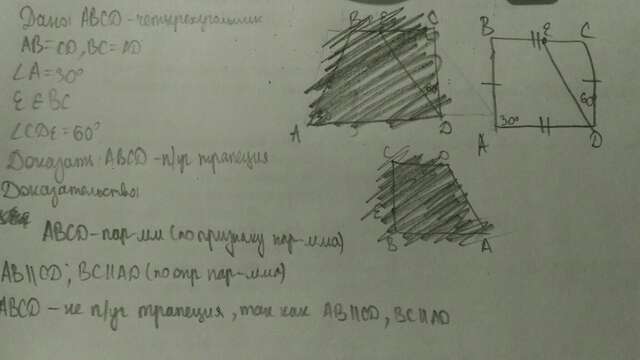 Дано: ABCD - четырехугольник
AB = CD, BC = AD
∠A = 30°
E ∈ BC
∠CDE = 60°
Доказать: ABCD - п/уг трапеция
Доказательство:
ABCD - пар-мм (по признаку пар-мма)
AB || CD; BC || AD (по опр пар-мма)
ABCD - не п/уг трапеция, так как AB || CD, BC || AD
B E C
A D
60°
B E C
60°
30°
A D
C D
E
B A